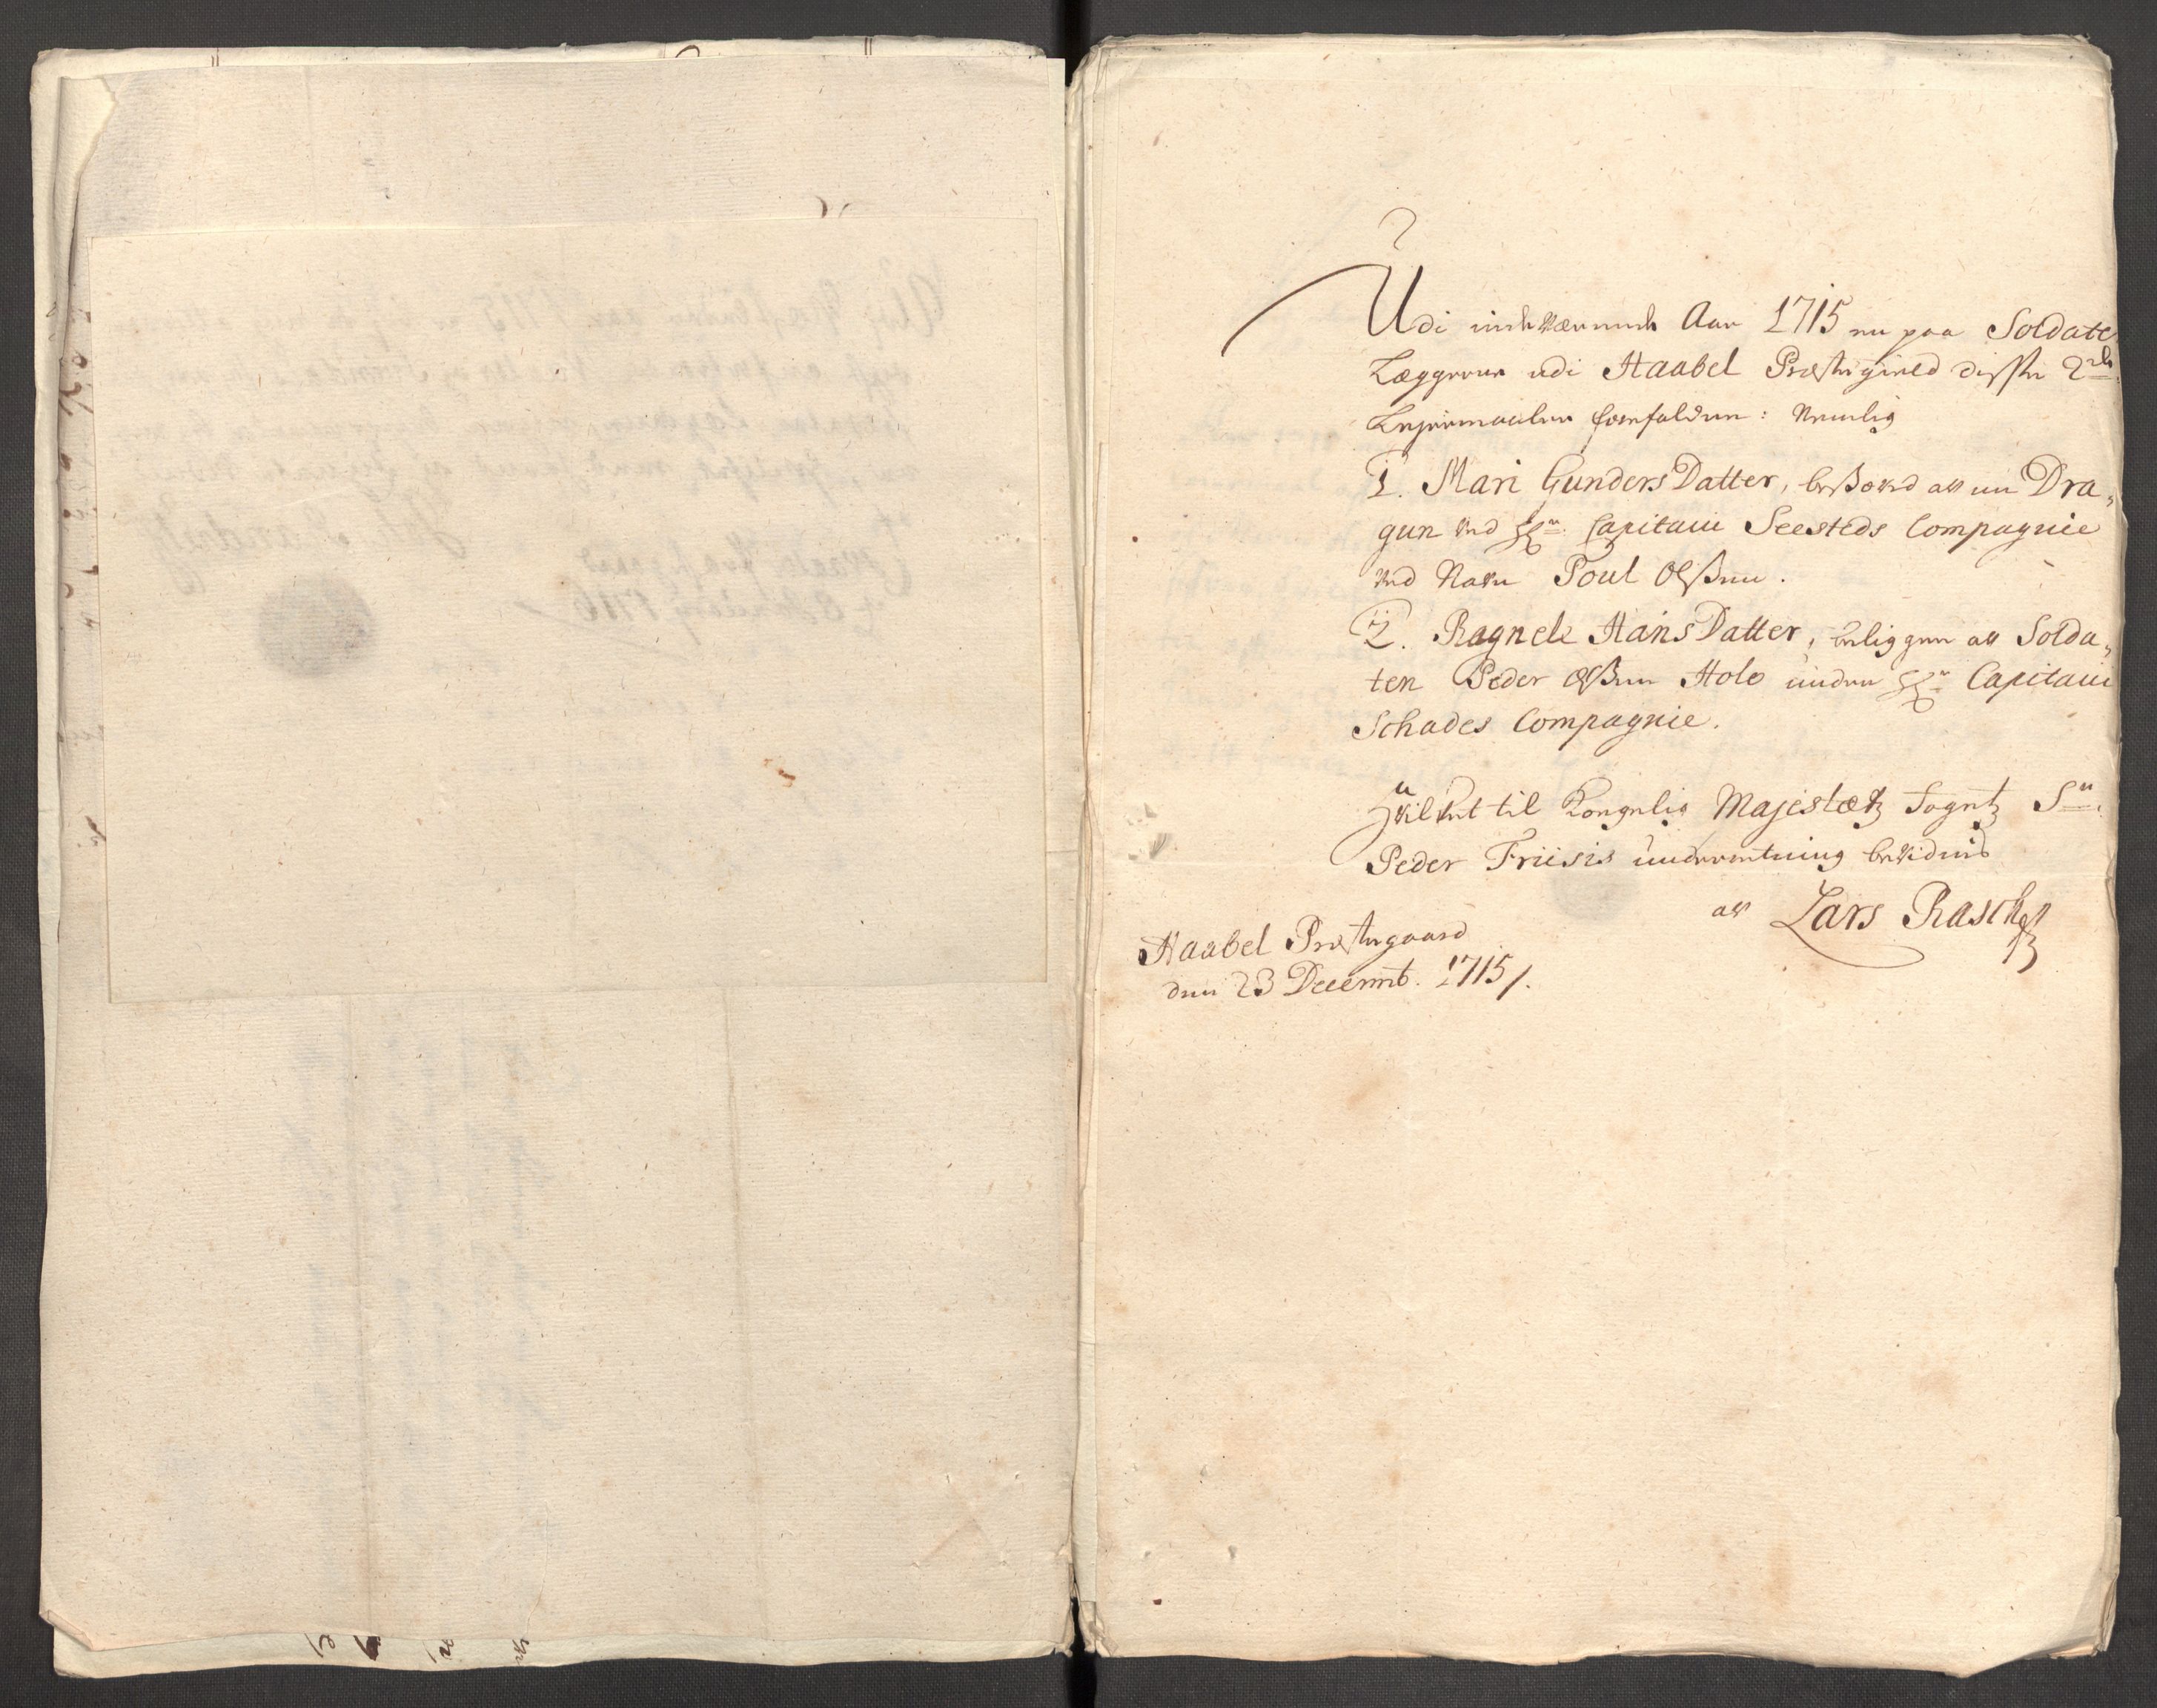 Udi indeværende Aar 1715 er paa Soldate
Læggerne udi Haabel Præstegield disse 2de
Leyermaaler forefalden: Nemlig
1. Mari GundersDatter, besoved aff en Dra„
gun ved Hr. Capitain Seesteds Compagnie
ved Nafn Poul Olßen.
2. Ragnele HansDatter, beliggen aff Solda„
ten Peder Olßen Holo under Hr. Capitain
Schades Compagnie.
Hvilket til Kongelig Majestætz Fogetz Sr.
Peder Friisis underretning bevidnis
aff Lars Rasch
Haabel Præstegaard
den 23 Decemb. 1715/.